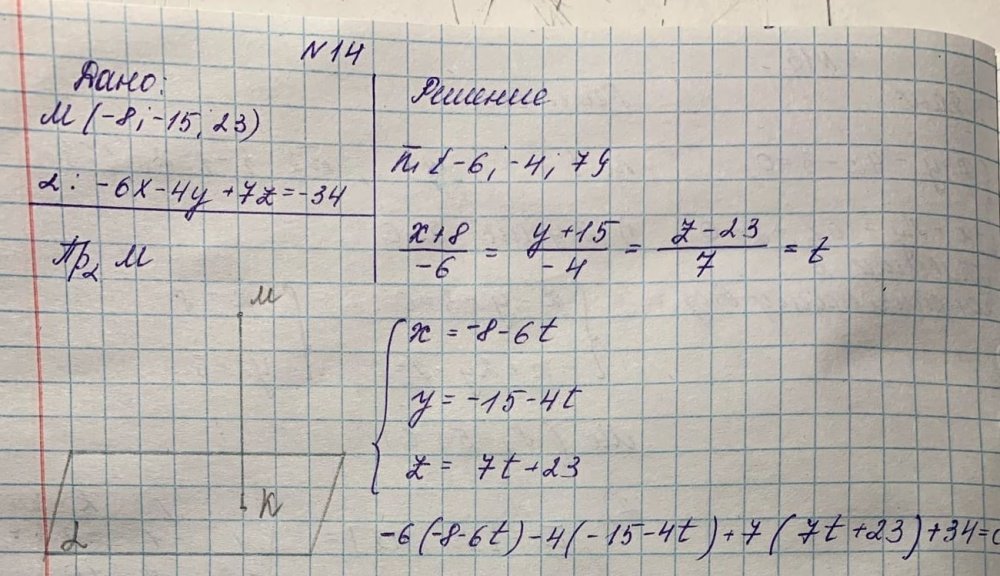 N14
Дано:
M (-8; -15; 23)
α: -6x-4y+7z=-34
Пр_α M
M
K
α
Решение
n̄ {-6; -4; 7}
(x+8)/(-6) = (y+15)/(-4) = (z-23)/7 = t
{ x = -8-6t
y = -15-4t
z = 7t+23
-6(-8-6t)-4(-15-4t)+7(7t+23)+34=0